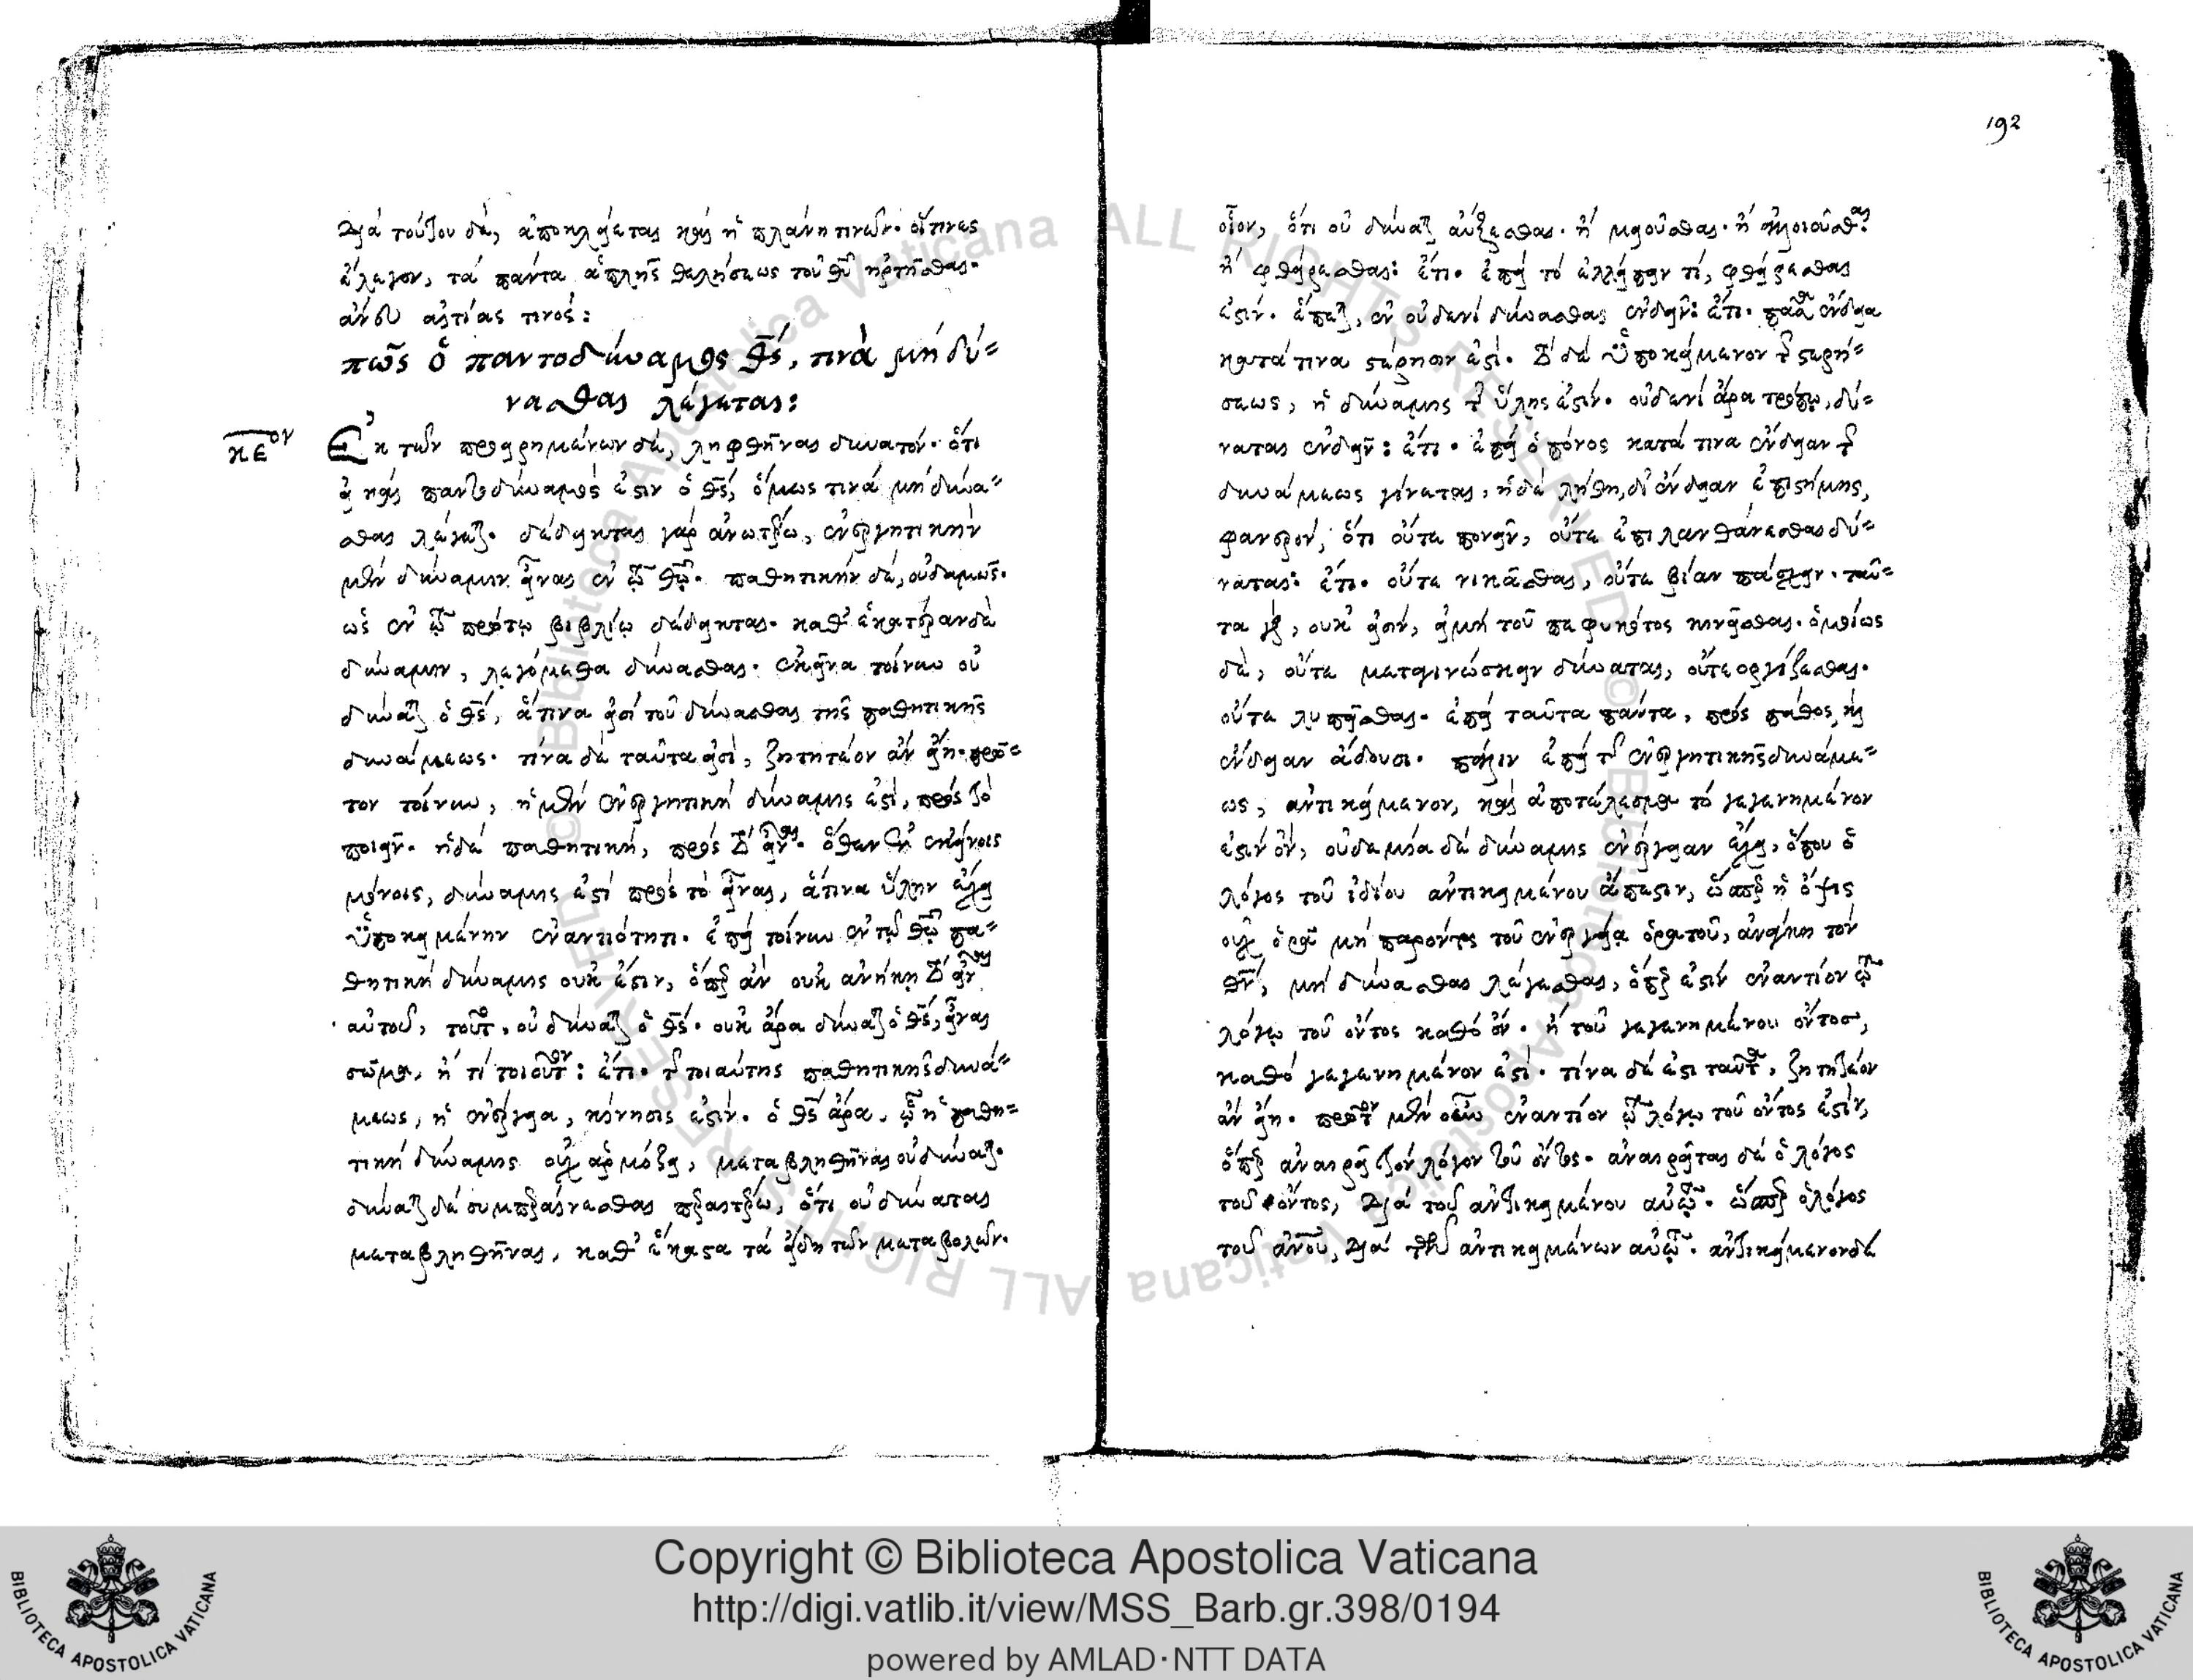 διά τούτου δέ, ἀποκλείεται καί ἡ πλάνη τινῶν· οἵτινες
ἔλεγον, τά πάντα ἁπλῆς θελήσεως τοῦ θῦ ἠρτῆσθαι·
ἄνευ αἰτίας τινός:
πῶς ὁ παντοδύναμος θς, τινὰ μή δύ=
νασθαι λέγεται:
κε ον
Ἐκ τῶν προειρημένων δέ, ληφθῆναι δυνατόν· ὅτι
εἰ καί παντοδύναμός ἐστιν ὁ θς, ὅμως τινά μή δύνα=
σθαι λέγεται. δέδεικται γάρ ἀνωτέρω, ἐνεργητικήν
μέν δύναμιν εἶναι ἐν τῶ θῶ· παθητικήν δέ, οὐδαμῶς.
ὡς ἐν τῶ πρώτῳ βιβλίῳ δέδεικται. καθ' ἑκατέραν δὲ
δύναμιν, λεγόμεθα δύνασθαι. ἐκεῖνα τοίνυν οὐ
δύναται ὁ θς, ἅτινα εἰσί τοῦ δύνασθαι τῆς παθητικῆς
δυνάμεως. τίνα δέ ταῦτα εἰσί, ζητητέον ἄν εἴη. πρῶ=
τον τοίνυν, ἡ μέν ἐνεργητική δύναμις ἐστί, πρός τό
ποιεῖν. ἡ δέ παθητική, πρός τό εἶναι. ὅθεν ἐν ἐκείνοις
μόνοις, δύναμις ἐστί πρός τὸ εἶναι, ἅτινα ὕλην ἔχει
ὑποκειμένην ἐναντιότητι. ἐπεί τοίνυν ἐν τῷ θῶ πα=
θητική δύναμις οὐκ ἔστιν, ὅπερ ἄν οὐκ ἀνήκῃ τό εἶναι
αὐτοῦ, τοῦτο, οὐ δύναται ὁ θς. οὐκ ἄρα δύναται ὁ θς, εἶναι
σῶμα, ἤ τί τοιοῦτον: ἔτι. τῆς τοιαύτης παθητικῆς δυνά=
μεως, ἡ ἐνέργεια, κίνησις ἐστίν. ὁ θς ἄρα, ᾧ ἡ παθη=
τική δύναμις οὐχ ἁρμόζει, μεταβληθῆναι οὐ δύναται.
δύναται δέ συμπεραίνεσθαι περαιτέρω, ὅτι οὐ δύναται
μεταβληθῆναι, καθ' ἕκαστα τά εἴδη τῶν μεταβολῶν.
192
οἷον, ὅτι οὐ δύναται αὔξεσθαι. ἤ μειοῦσθαι. ἤ ἀλλοιοῦσθαι
ἤ φθείρεσθαι: ἔτι. ἐπεί τό ἐλλείπειν τί, φθείρεσθαι
ἐστίν. ἕπεται, ἐν οὐδενί δύνασθαι ἐνδεῖν: ἔτι. πᾶσα ἔνδεια
κατά τινα στέρησιν ἐστί. τό δέ ὑποκείμενον τῆς στερή=
σεως, ἡ δύναμις τῆς ὕλης ἐστίν. οὐδενί ἄρα τρόπῳ, δύ=
ναται ἐνδεῖν: ἔτι. ἐπεί ὁ πόνος κατά τινα ἔνδειαν τῆς
δυνάμεως γίνεται, ἡ δέ λήθη, δι' ἔνδειαν ἐπιστήμης,
φανερόν, ὅτι οὔτε πονεῖν, οὔτε ἐπιλανθάνεσθαι δύ=
ναται: ἔτι. οὔτε νικᾶσθαι, οὔτε βίαν πάσχειν. ταῦ=
τα γάρ, οὐκ εἰσίν, εἰ μή τοῦ πεφυκότος κινεῖσθαι. ὁμοίως
δὲ, οὔτε μεταγινώσκειν δύναται, οὔτε ὀργίζεσθαι.
οὔτε λυπεῖσθαι. ἐπεί ταῦτα πάντα, πρός πάθος καί
ἔνδειαν ἄδουσι. πάλιν ἐπεί τῆς ἐνεργητικῆς δυνάμε=
ως, ἀντικείμενον, καί ἀποτέλεσμα τό γεγενημένον
ἐστίν ὄν, οὐδεμία δέ δύναμις ἐνέργειαν ἔχει, ὅπου ὁ
λόγος τοῦ ἰδίου ἀντικειμένου ἄπεστιν, ὥσπερ ἡ ὄψις
οὐχ ὁρᾷ μή παρόντος τοῦ ἐνεργείᾳ ὁρατοῦ, ἀνάγκη τόν
θν, μή δύνασθαι λέγεσθαι, ὅπερ ἐστίν ἐναντίον τῶ
λόγῳ τοῦ ὄντος καθό ὄν. ἤ τοῦ γεγενημένου ὄντος,
καθό γεγενημένον ἐστί. τίνα δέ ἐστι ταῦτα, ζητητέον
ἄν εἴη. πρῶτον μέν οὖν ἐναντίον τῶ λόγῳ τοῦ ὄντος ἐστίν,
ὅπερ ἀναιρεῖ τόν λόγον τοῦ ὄντος. ἀναιρεῖται δέ ὁ λόγος
τοῦ ὄντος, διά τοῦ ἀντικειμένου αὐτῶ. ὥσπερ ὁ λόγος
τοῦ ἀνου, διά τῶν ἀντικειμένων αὐτῶ. ἀντικείμενον δέ
Copyright © Biblioteca Apostolica Vaticana
http://digi.vatlib.it/view/MSS_Barb.gr.398/0194
powered by AMLAD·NTT DATA
BIBLIOTECA APOSTOLICA VATICANA
BIBLIOTECA APOSTOLICA VATICANA
© Biblioteca Apostolica Vaticana ALL RIGHTS RESERVED © Biblioteca Apostolica Vaticana ALL RIGHTS RESERVED